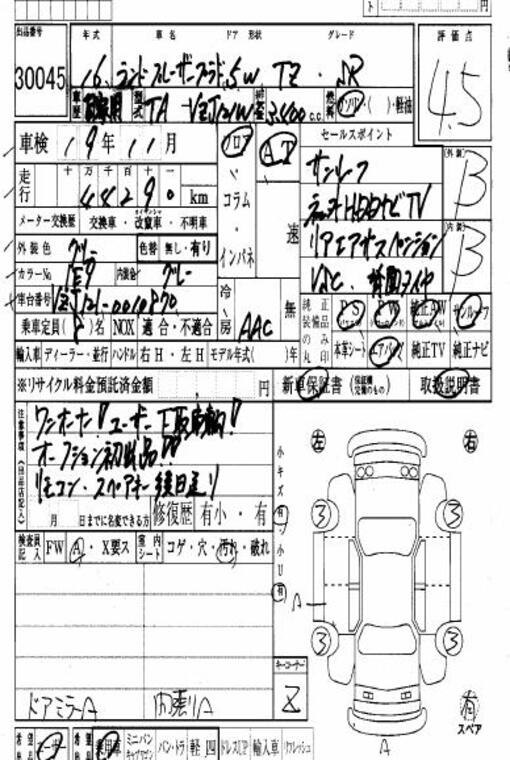 出品番号 年式 車名 ドア 形状 グレード 評価点
30045 16 ランドクルーザープラド 5W TZ ・ SR 4.5
車歴 自家用 型式 TA - VZJ121W 排気量 3,400 c.c. 燃料 ガソリン・( )・軽油
車検 19年 11月 フロア AT セールスポイント
コラム インパネ 速
走行 十万 万 千 百 十 一
44290 km
サンルーフ 外装 B
HDDナビTV
メーター交換歴 交換車・改竄車・不明車
リアエアサスペンション 内装 B
外装色 グレー 色替 無し・有り
カラーNo 1E9 内装色 グレー
車台番号 VZJ121-0010870
冷房 AAC 無 純正装備品のみ丸印 PS PW 純正AW サンルーフ
乗車定員( 8 )名 NOX 適合・不適合
本革シート エアバッグ 純正TV 純正ナビ
輸入車 ディーラー・並行 ハンドル 右H・左H モデル年式( )年
※リサイクル料金預託済金額 円 新車保証書 (保証継続可能のもの) 取扱説明書
注意事項(出品店記入)
ワンオーナー! ユーザー下取車輌!
オークション初出品!!
リモコン・スペアキー後日送り
月 日までに名変できる方 修復歴 有小・有
小キズ有・小U有
左 右
検査員記入 FW A・X要ス 室内シート コゲ・穴・汚れ・破れ
3 3
A
3 3
キーコーナー
Z
ドアミラーA 内張りA
有
スペア
A
希望 乗用車 ミニバン キャブワゴン バン・トラ 軽 四 ドレスUP 輸入車 リフレッシュ